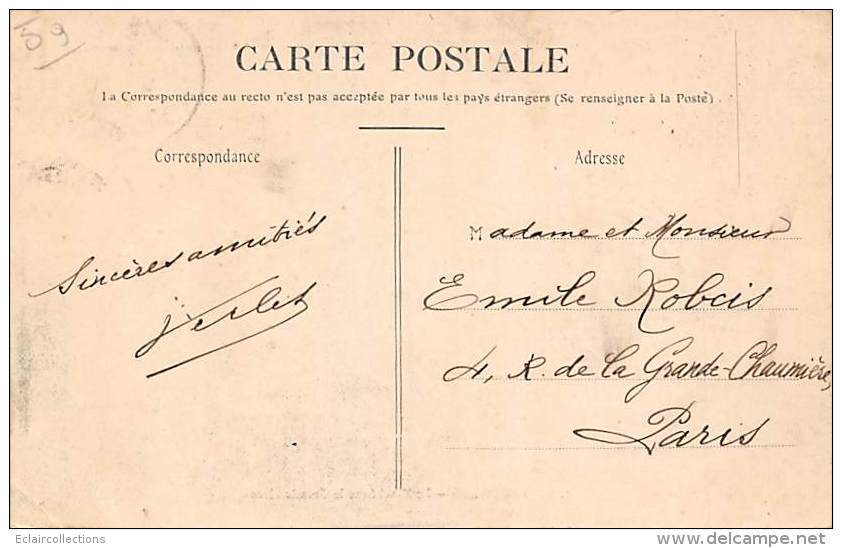 59
CARTE POSTALE
La Correspondance au recto n'est pas acceptée par tous les pays étrangers (Se renseigner à la Poste)
Correspondance
Adresse
Sincères amitiés
Madame et Monsieur
Emile Robcis
4, R. de la Grande-Chaumière,
Paris
Eclaircollections
www.delcampe.net